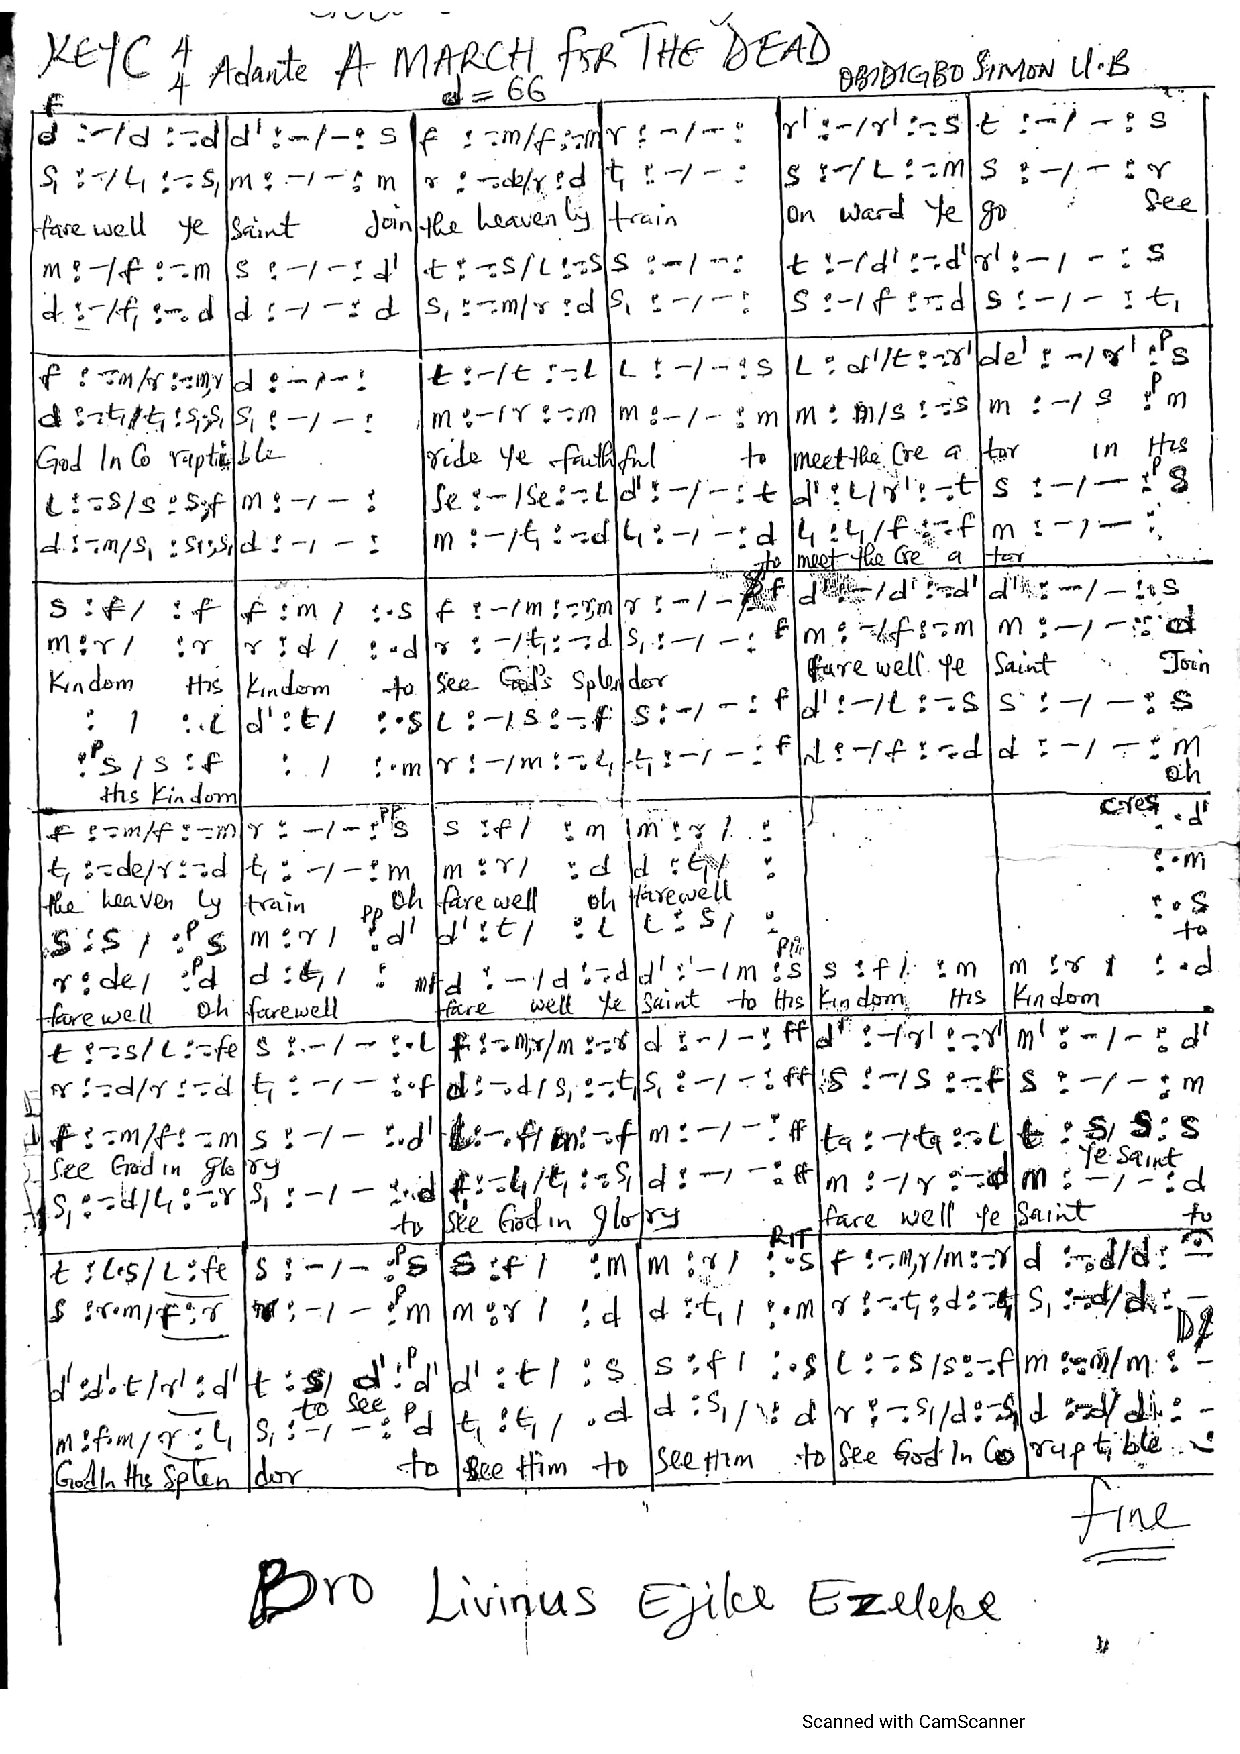 KEY C 4/4 Adante A MARCH FOR THE DEAD OBIDIGBO SIMON U.B
d = 66
f
d :-/d :-.d | d' :-/- : s | f :-.m/f :-.m | r :-/- : | r' :-/r' :-.s | t :-/- : s
s₁ :-/l₁ :-.s₁ | m :-/- : m | r :-.de/r : d | t₁ :-/- : | s :-/L :-.m | s :-/- : r
fare well ye | Saint Join | the heavenly | train | On ward ye | go See
m :-/f :-.m | s :-/- : d' | t :-.s/L :-.s | s :-/- : | t :-/d' :-.d' | r' :-/- : s
d :-/f₁ :-.d | d :-/- : d | s₁ :-.m/r : d | s₁ :-/- : | s :-/f :-.d | s :-/- : t₁
f :-.m/r :-.m,r | d :-/- : | t :-/t :-.L | L :-/- : s | L : d'/t :-.r' | de' :-/r' :P s
d :-.t₁/t₁ : s₁.s₁ | s₁ :-/- : | m :-/r :-.m | m :-/- : m | m : m/s :-.s | m :-/s :P m
God In Co ruptib ble | ride ye faithful to | meet the Cre a tor in His
L :-.s/s : s.f | m :-/- : | se :-/se :-.L | d' :-/- : t | d' : L/r' :-.t | s :-/- :P s
d :-.m/s₁ : s₁.s₁ | d :-/- : | m :-/t₁ :-.d | l₁ :-/- : d | l₁ : l₁/f :-.f | m :-/- :
to meet the Cre a tor
s : f/ : f | f : m/ :.s | f :-/m :-.m | r :-/- : f | d' :-/d' :-.d' | d' :-/- : s
m : r/ : r | r : d/ :.d | r :-/t₁ :-.d | s₁ :-/- : f | m :-/f :-.m | m :-/- : d
Kindom His | Kindom to | See God's Splendor | fare well ye | Saint Join
: / :.L | d' : t/ :.s | L :-/s :-.f | s :-/- : f | d' :-/L :-.s | s :-/- : s
:P s/s : f | : / :.m | r :-/m :-.l₁ | t₁ :-/- : f | d :-/f :-.d | d :-/- : m
His Kindom Oh
cres
f :-.m/f :-.m | r :-/- :PP s | s : f/ : m | m : r/ : | :.d'
t₁ :-.de/r :-.d | t₁ :-/- : m | m : r/ : d | d : t₁/ : | :.m
the heaven ly | train Oh | fare well oh | farewell | :.s
s : s/ :P s | m : r/ PP : d' | d' : t/ : L | L : s/ : | to
r : de/ :P d | d : t₁/ : mf | d :-/d :-.d | d' :-/m : s | s : f/ : m | m : r/ :.d
fare well Oh | farewell | fare well ye | Saint to His | Kindom His | Kindom
t :-.s/L :-.fe | s :-/- :.L | f :-.m,r/m :-.r | d :-/- : ff | d' :-/r' :-.r' | m' :-/- : d'
r :-.d/r :-.d | t₁ :-/- :.f | d :-.d/s₁ :-.t₁ | s₁ :-/- : ff | s :-/s :-.f | s :-/- : m
f :-.m/f :-.m | s :-/- :.d' | L :-.f/m :-.f | m :-/- : ff | ta :-/ta :-.L | t : s/ s : s
See God in glory ye Saint
s₁ :-.d/l₁ :-.r | s₁ :-/- :.d | f :-.l₁/t₁ :-.s₁ | d :-/- : ff | m :-/r :-.d | m :-/- : d
to | See God in glory | fare well ye | Saint to
RIT
t : L.s/L : fe | s :-/- :P s | s : f/ : m | m : r/ :.s | f :-.m,r/m :-.r | d :-.d/d :
s : r.m/f : r | r :-/- :P m | m : r/ : d | d : t₁/ :.m | r :-.t₁ : d :-.t₁ | s₁ :-.d/d : -
d' : d'.t/r' : d' | t : s/ d' :P d' | d' : t/ : s | s : f/ :.s | L :-.s/s :-.f | m :-.m/m : -
to see
m : f.m/r : l₁ | s₁ :-/- :P d | t₁ : t₁/ .d | d : s₁/ : d | r :-.s₁/d :-.s₁ | d :-.d/d : -
God In His Splen | dor to | see Him to | see Him to | See God In Co | rupti ble
fine
Bro Livinus Ejike Ezeleke
Scanned with CamScanner